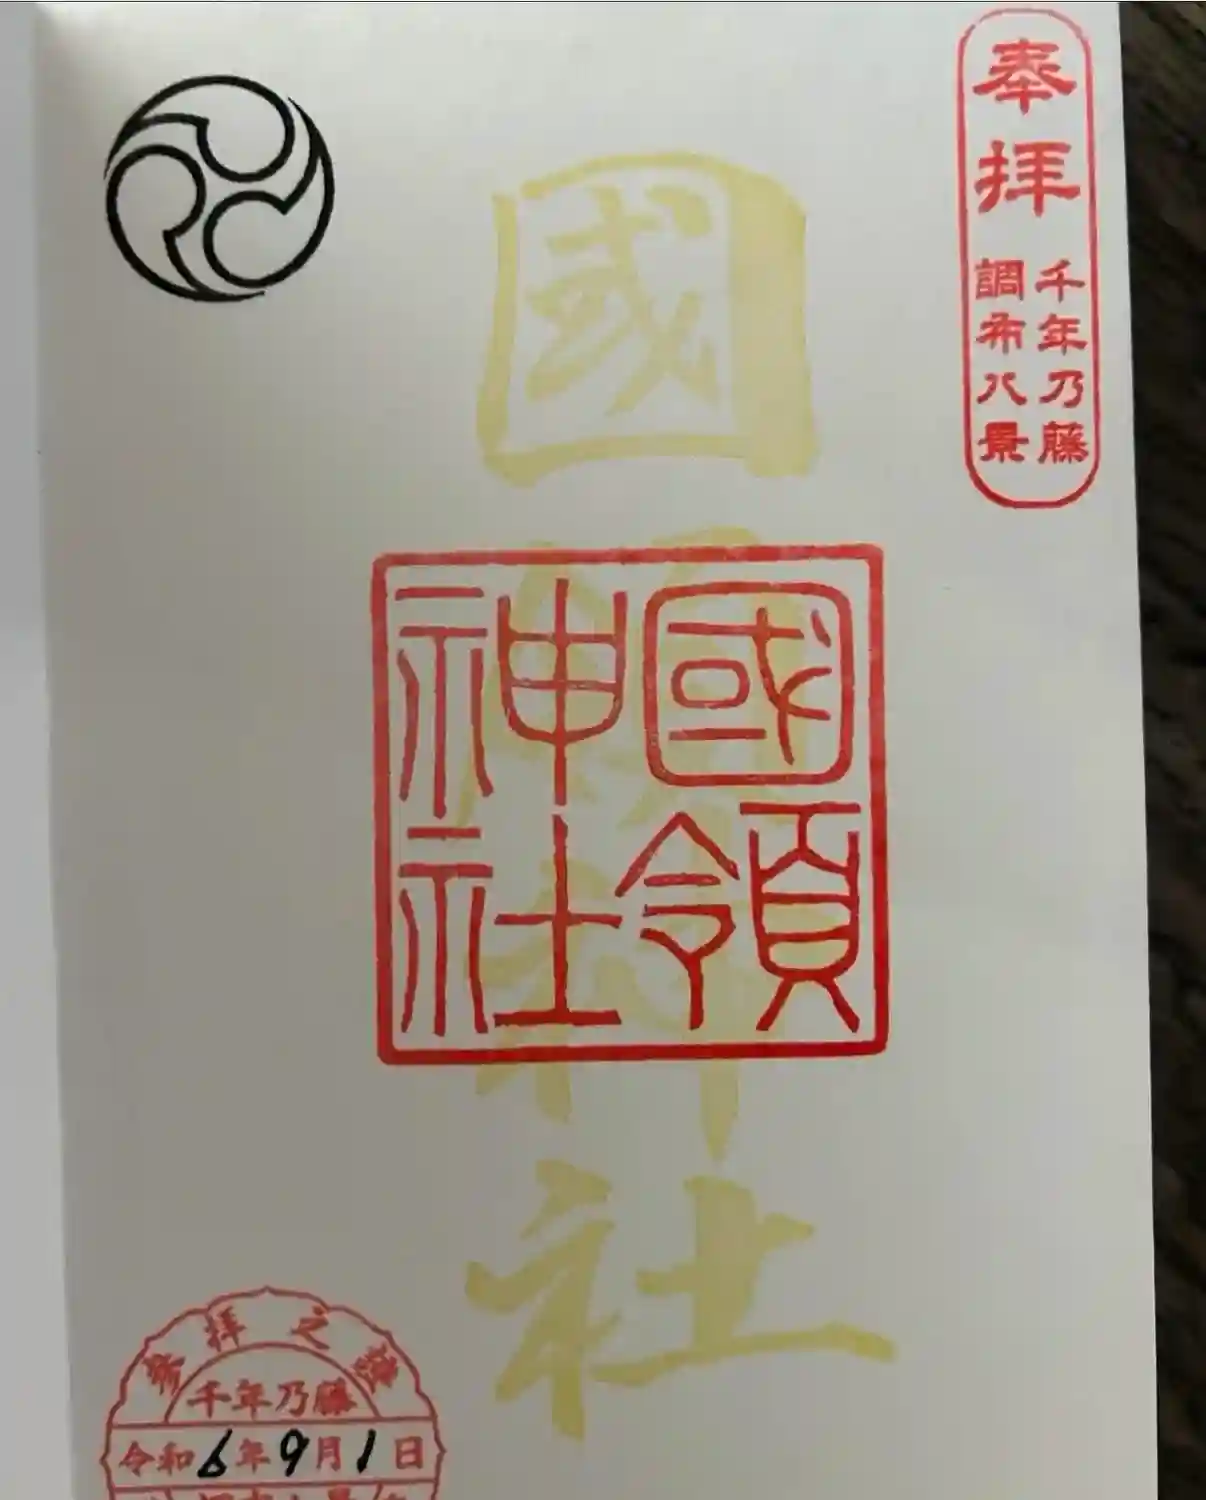 奉拝
千年乃藤
調布八景
國領神社
國領
神社
参拝之證
千年乃藤
令和6年9月1日